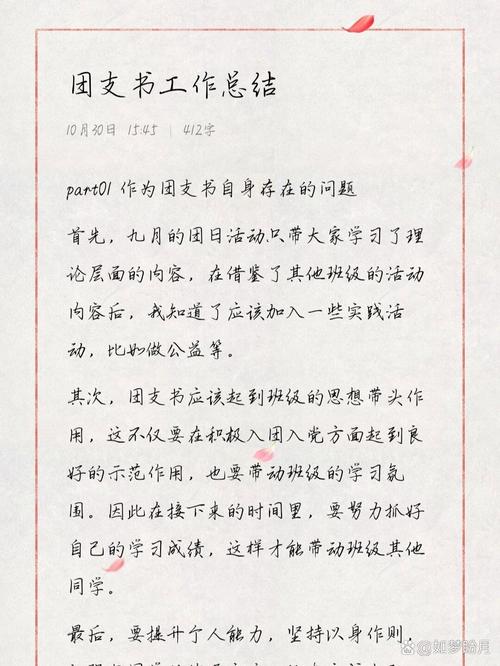 团支书工作总结
10月30日 15:45 | 412字
part01 作为团支书自身存在的问题
首先，九月的团日活动只带大家学习了理
论层面的内容，在借鉴了其他班级的活动
内容后，我知道了应该加入一些实践活
动，比如做公益等。
其次，团支书应该起到班级的思想带头作
用，这不仅要在积极入团入党方面起到良
好的示范作用，也要带动班级的学习氛
围。因此在接下来的时间里，要努力抓好
自己的学习成绩，这样才能带动班级其他
同学。
最后，要提升个人能力，坚持以身作则，
@如梦盼月